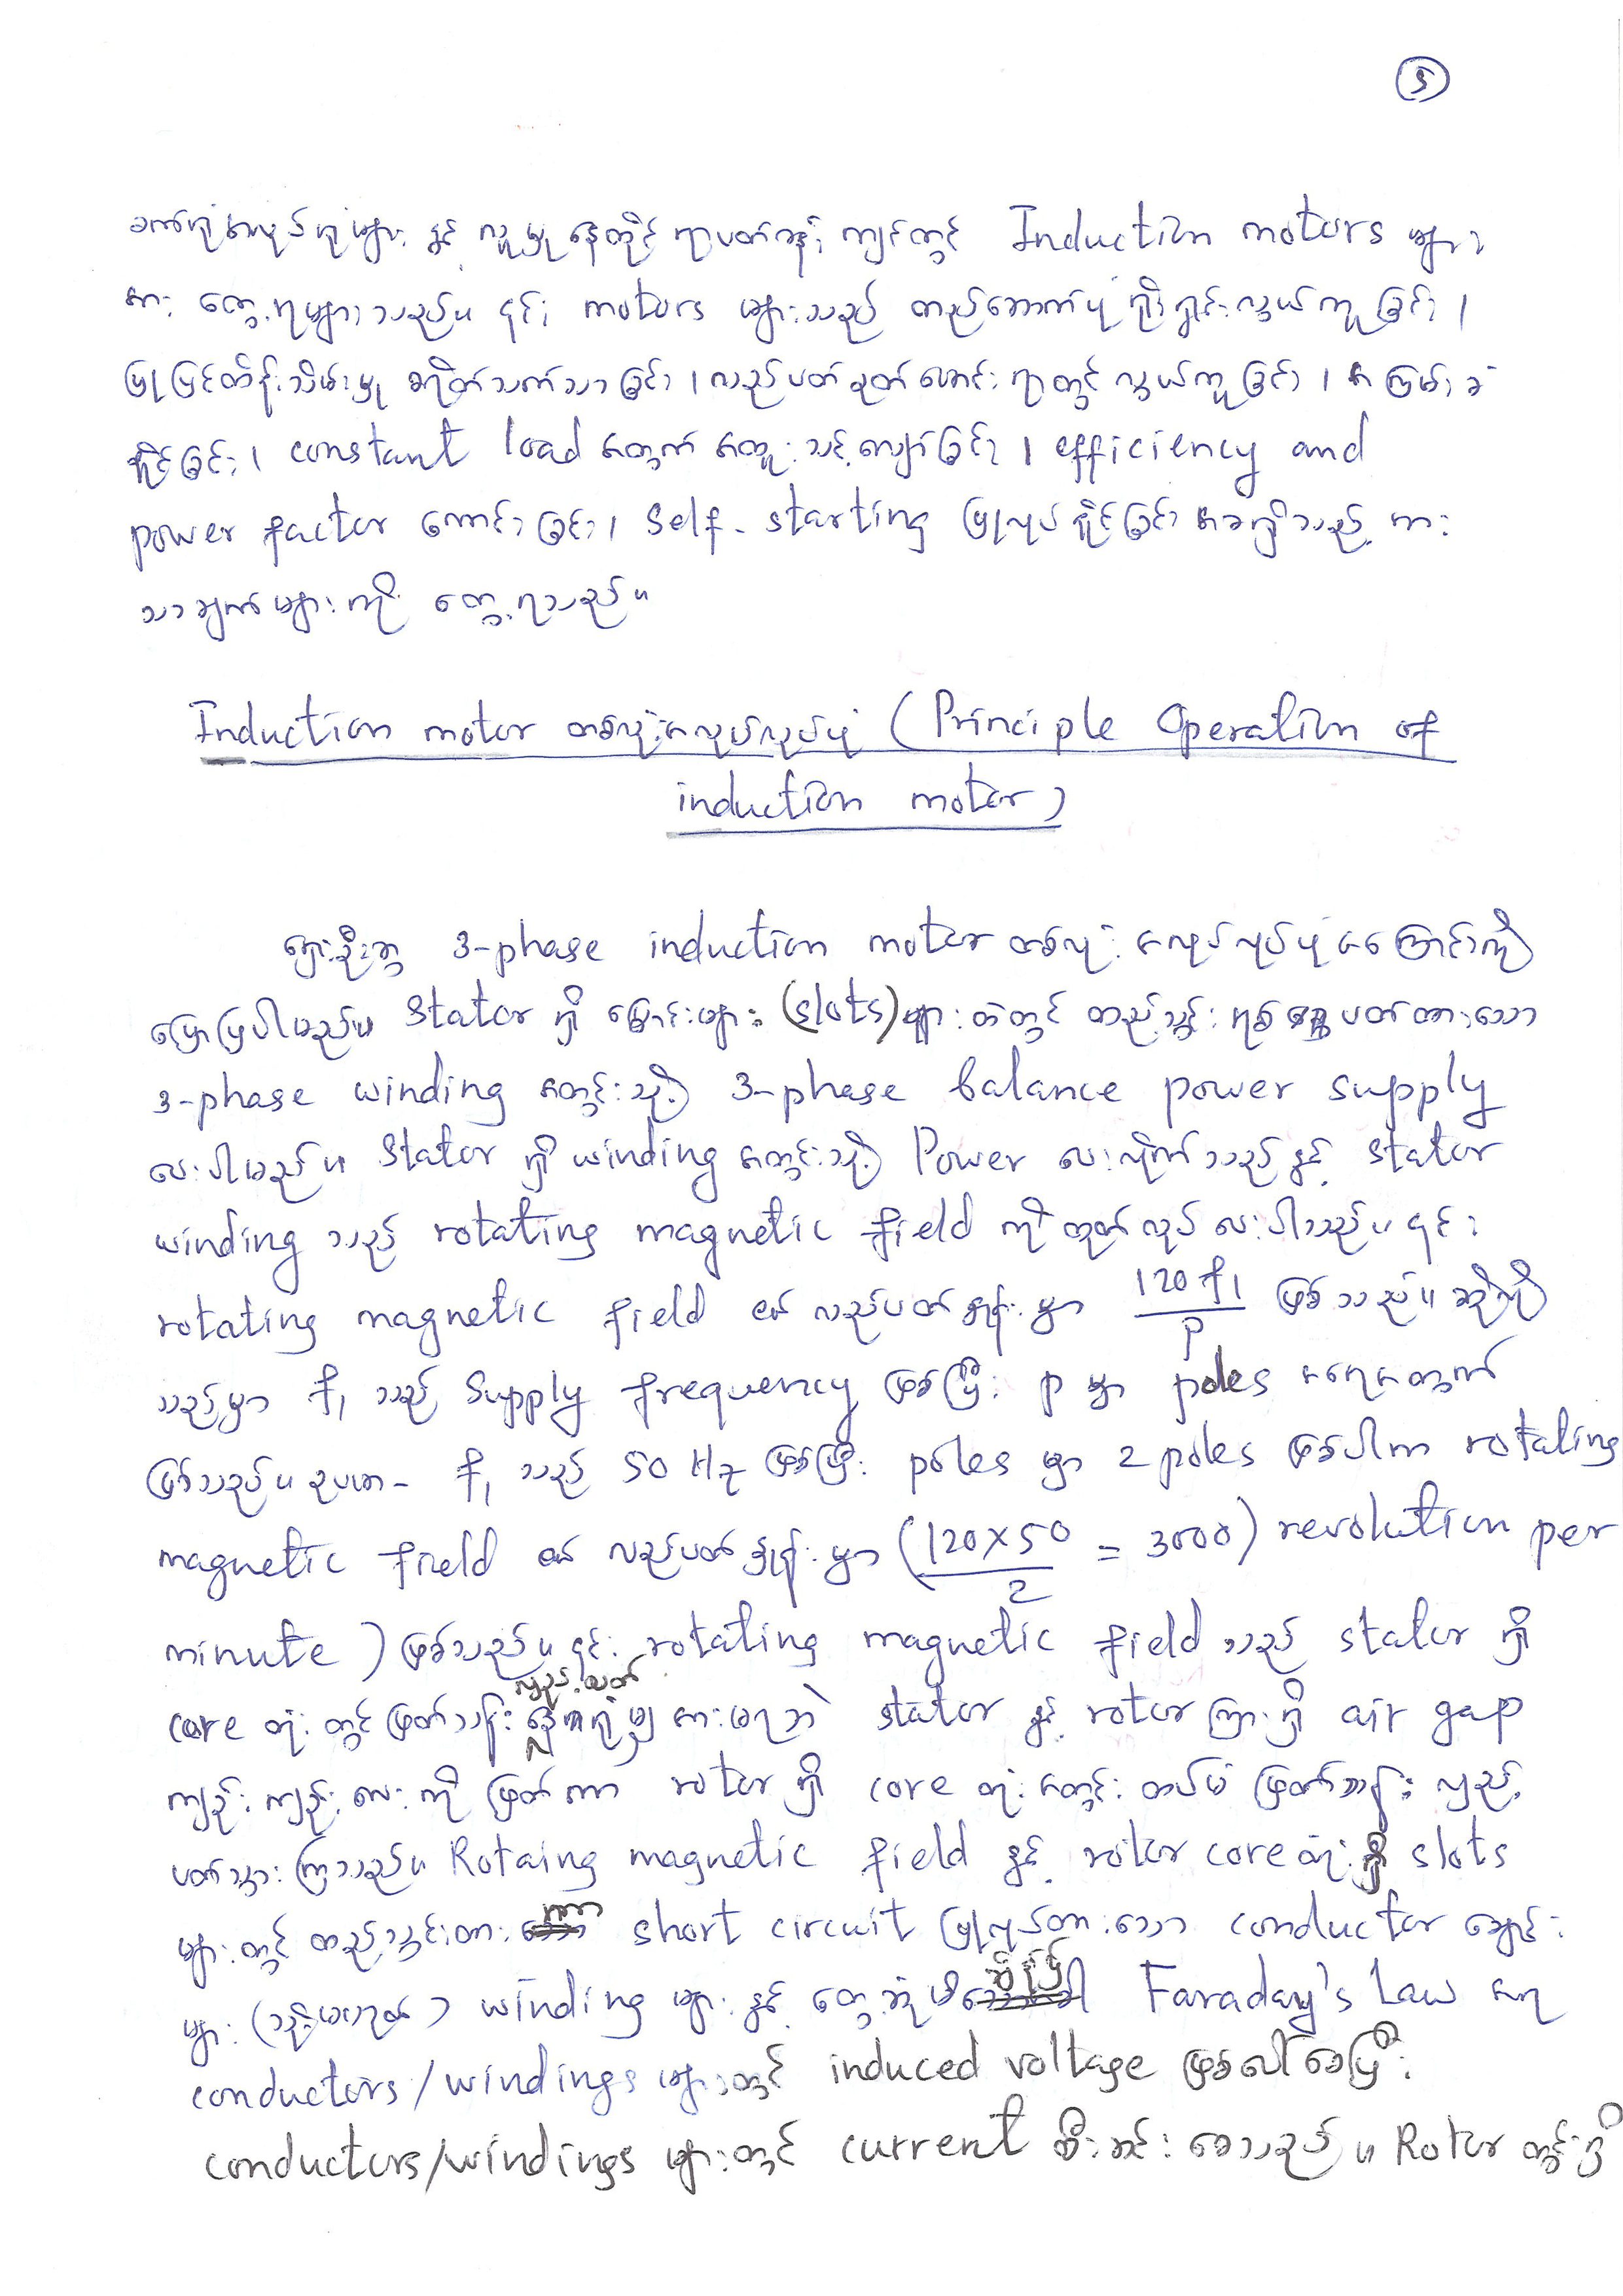 ၅
စက်ရုံအလုပ်ရုံများ နှင့် လူမှုနေထိုင်ရာပတ်ဝန်းကျင်တွင် Induction motors များ
အား တွေ့ရများသည်။ ၎င်း motors များသည် တည်ဆောက်ပုံ ရိုးရှင်းလွယ်ကူခြင်း ၊
ပြုပြင်ထိန်းသိမ်းမှု စရိတ်သက်သာခြင်း ၊ လည်ပတ်မောင်း ရာတွင် လွယ်ကူခြင်း ၊ အကြမ်းခံ
နိုင်ခြင်း ၊ constant load အတွက် အထူးသင့်လျော်ခြင်း ၊ efficiency and
power factor ကောင်းခြင်း ၊ Self-starting ပြုလုပ်နိုင်ခြင်း အစရှိသည့် အား
သာချက်များကို တွေ့ရသည်။
Induction motor တစ်လုံးအလုပ်လုပ်ပုံ (Principle Operation of
induction motor)
ရှေးဦးစွာ 3-phase induction motor တစ်လုံး အလုပ်လုပ်ပုံ အကြောင်းကို
ပြောပြပါမည်။ Stator ရှိ မြောင်းများ (slots) များထဲတွင် ထည့်သွင်း ရစ်ပတ်ထားသော
3-phase winding အတွင်းသို့ 3-phase balance power supply
ပေးပါမည်။ Stator ရှိ winding အတွင်းသို့ Power ပေးလိုက်သည်နှင့် stator
winding သည် rotating magnetic field ကို ထုတ်လုပ်ပေးပါသည်။ ၎င်း
rotating magnetic field ၏ လည်ပတ်နှုန်းမှာ 120 f₁ / P ဖြစ်သည်။ ဆိုလို
သည်မှာ f₁ သည် Supply frequency ဖြစ်ပြီး p မှာ poles အရေအတွက်
ဖြစ်သည်။ ဥပမာ - f₁ သည် 50 Hz ဖြစ်ပြီး poles မှာ 2 poles ဖြစ်ပါက rotating
magnetic field ၏ လည်ပတ်နှုန်းမှာ (120×50 / 2 = 3000) revolution per
minute ) ဖြစ်သည်။ ၎င်း rotating magnetic field သည် stator ရှိ
core တုံးတွင် ဖြတ်သန်း လှည့်ပတ် ရုံမျှ အားမရဘဲ stator နှင့် rotor ကြားရှိ air gap
ကျဉ်းကျဉ်းလေးကို ဖြတ်ကာ rotor ရှိ core တုံးအတွင်း ထပ်မံ ဖြတ်သန်း လှည့်
ပတ်သွားကြသည်။ Rotaing magnetic field နှင့် rotor core တုံးရှိ slots
များတွင် ထည့်သွင်းထားကာ short circuit ပြုလုပ်ထားသော conductor ချောင်း
များ (သို့မဟုတ်) winding များနှင့် တွေ့ဆုံမိချိန်၌ Faraday's Law အရ
conductors/windings များတွင် induced voltage ဖြစ်ပေါ်စေပြီး
conductors/windings များတွင် current စီးဆင်းစေသည်။ Rotor တွင်းရှိ